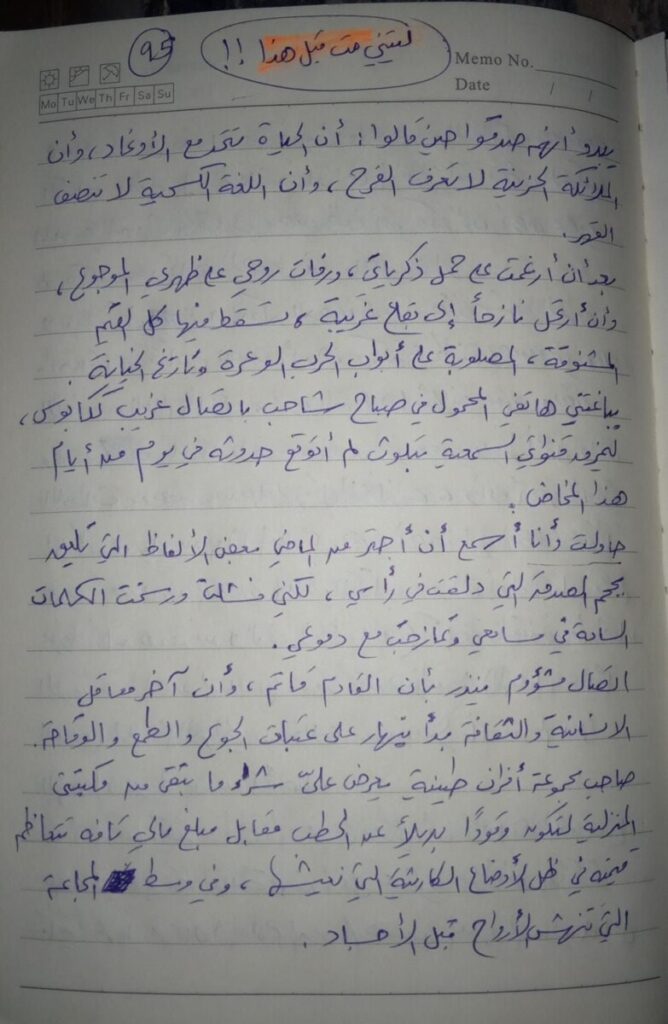 95
ليتني مت قبل هذا !!
Memo No.
Date / /
Mo Tu We Th Fr Sa Su
يبدو أنهم صدقوا حين قالوا: أن الحياة تتحد مع الأوغاد، وأن
الملائكة الحزينة لا تعرف الفرح، وأن اللغة الكسيحة لا تنصف
القهر.
بعد أن أرغمت على حمل ذكرياتي، ورفات روحي على ظهري الموجوع،
وأن أرتحل نازحاً إلى بقاع غريبة، تسقط فيها كل القيم
المشنوقة، المصلوبة على أبواب الحرب الوعرة وتاريخ الخيانة.
يباغتني هاتفي المحمول في صباح شاحب باتصال غريب ككابوس،
ليخز قنواتي السمعية بتلوث لم أتوقع حدوثه في يوم من أيام
هذا المخاض.
حاولت وأنا أسمع أن أجتر من الماضي بعض الألفاظ التي تليق
بحجم الصدمة التي دلقت في رأسي، لكني فشلت ورسخت الكلمات
السامة في مسامعي وتمازجت مع دموعي.
اتصال مشؤوم ينذر بأن القادم قاتم، وأن آخر معاقل
الإنسانية والثقافة بدأ ينهار على عتبات الجوع والطمع والوقاحة.
صاحب مجموعة أفران طينية يعرض عليّ شراء ما تبقى من مكتبتي
المنزلية لتكون وقودًا بديلاً عن الحطب مقابل مبلغ مالي تافه تتعاظم
قيمته في ظل الأوضاع الكارثية التي نعيشها، وفي وسط المجاعة
التي تنهش الأرواح قبل الأجساد.